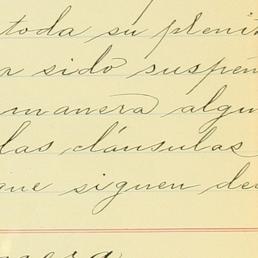 toda su plenit
a sido suspen
manera algu
las cláusulas
que siguen de
mera